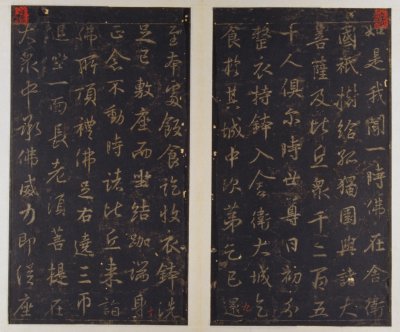 如是我聞一時佛在舍衛
國祇樹給孤獨園與諸大
菩薩及比丘衆千二百五
十人俱尔時世尊日初分
整衣持鉢入舍衛大城乞
食於其城中次第乞已還
至本處飯食訖收衣鉢洗
足已敷座而坐結跏端身
正念不動時諸比丘来詣
佛所頂禮佛足右遶三帀
退坐一面長老須菩提在
大衆中承佛威力即從座